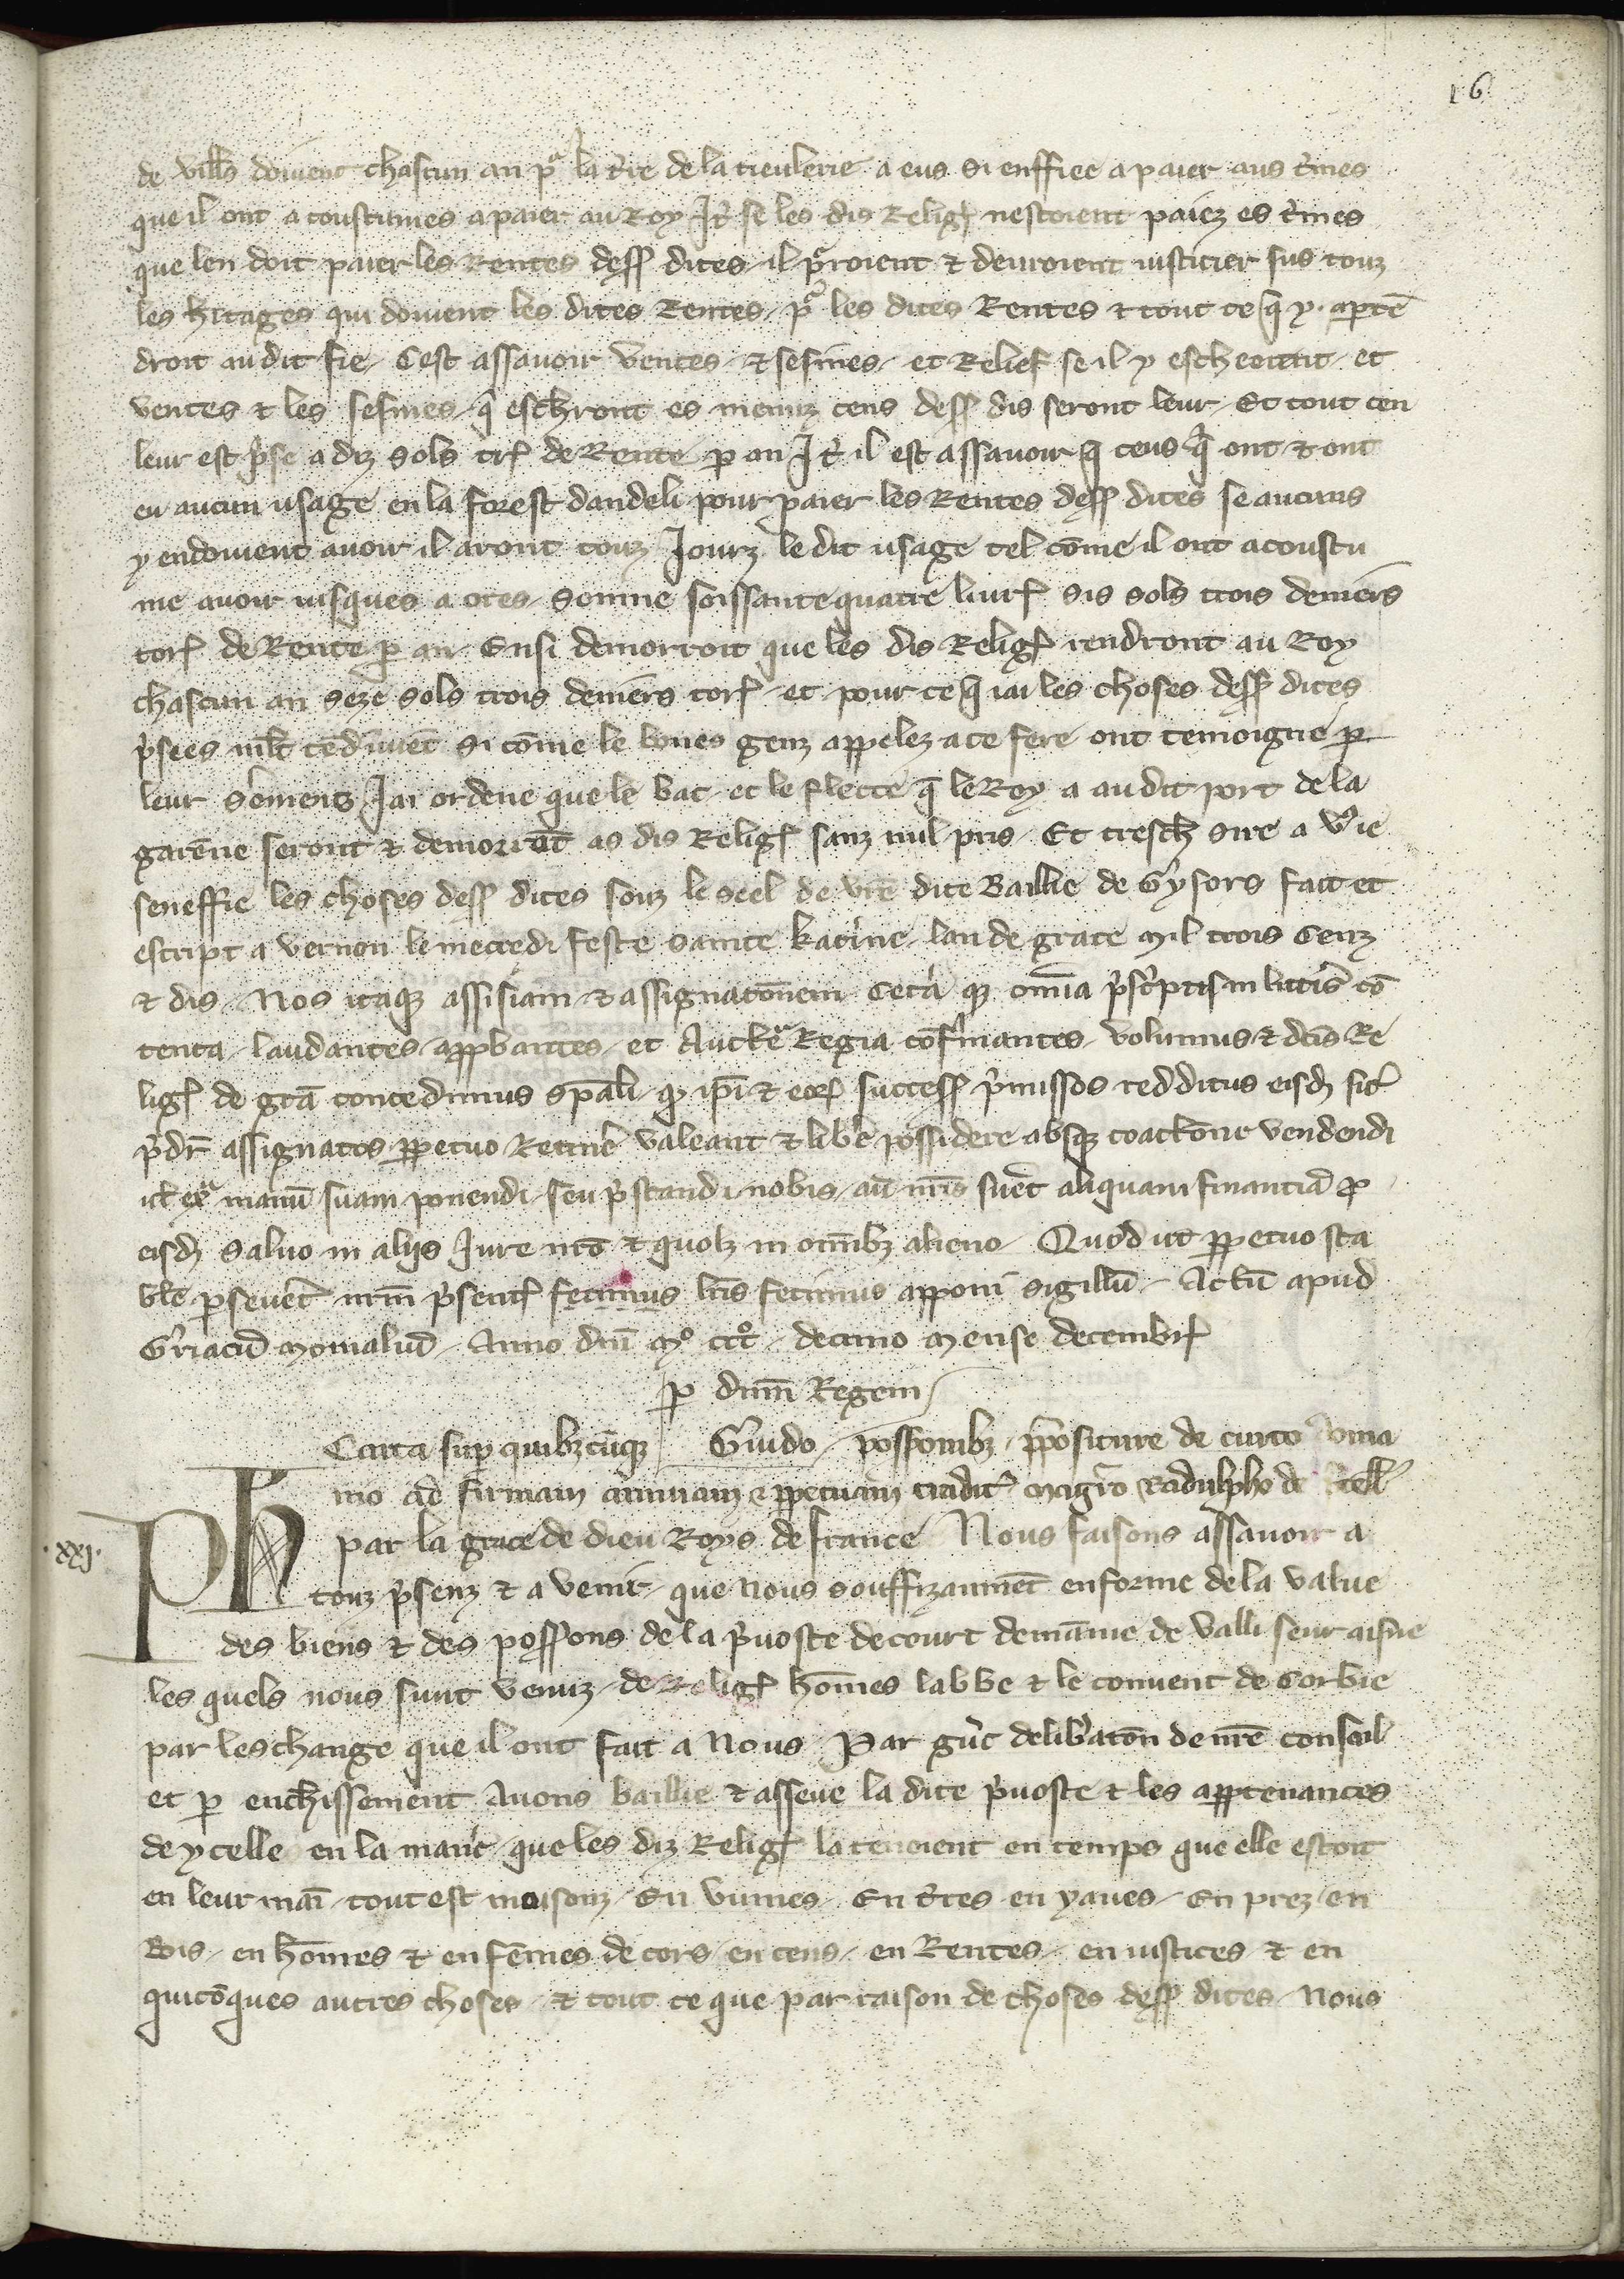 16
de vill͛s doivent chascun an pᵃ la t̾re de la tieulerie a eus si enffiee a paier aus t̾mes
que il ont acoustumes a paier au Roy It̾ se les dis Religꝭ nestoient paiez es t̾mes
que len doit paier les Rentes dess dites il pᵃroient ⁊ devroient justicier sus touz
les h̾itages qui doivent les dites Rentes pᵃ les dites Rentes ⁊ tout ce q̄ y aptē
droit audit fie Cest assavoir ventes ⁊ sesines et Relief se il y escheoitit et
ventes ⁊ les sesines q̄ esch̾ront es menuz cens dess dis seront leur Et tout cen
leur est p̾se a diz sols trꝭ de Rente p an It̾ il est assavoir q̄ ceus q̄ ont ⁊ ont
eu aucun usage en la forest dandeli pour paier les Rentes dess dites se aucuns
y en doivent avoir il aront touz Jourz le dit usage tel cōme il ont acoustu
me avoir jusques a ores Somme soissante quatre livrꝭ sis sols trois deniers
torꝭ de Rente p an Ensi demorroit que les dis Religꝭ rendront au Roy
chascun an seze sols trois deniers torꝭ et pour ce q̄ jai les choses dess dites
p̾sees si cōme le bones genz appelez a ce fere ont temoigne p
leur s̾emens Jai ordene que le bac et le flecte q̄ le Roy a audit port de la
garēne seront ⁊ demorrōt as dis Religꝭ sanz nul pris Et tresch̾ Sire a v̾re
seneffie les choses dess dites souz le seel de vrē dite Baillie de Gysors fait et
escript a Vernon le mecredi feste Sainte Kat̾ine lan de grace mil trois Cenz
⁊ dis Nos itaqꝫ assisiam ⁊ assignatōnem Cet̾a qꝫ omīa p̾sc̾ptis in litt̾is cō
tenta laudantes appbantes et Auctᵉ Regia cōf̾mantes volumus ⁊ dc̄is Re
ligꝭ de grā̄ concedimus sp̄ali qꝫ ip̄i ⁊ eorꝭ success p̾missos redditus eisd̄ sic̾
p̾dr̄ assignatos ppetuo Retin̾e valeant ⁊ lib̾e possidere absqꝫ coactōne vendendi
ul exᵃ manū suam ponendi seu p̾standi nobis aut nr̄is succ̾ aliquam financiā p̱
eisd̄ Salvo in aliis Jure nr̄o ⁊ quolꝫ in om̄ibꝫ alieno Quod ut ppetuo sta
bile psevet̾ nrm̄ p̾sentꝭ fecimus lr̄is fecimus apponi sigillū Actū apud
G̾riacū Monialiū Anno dn̄i Mº cccº decimo mense decembrꝭ
p dn̄m Regem
Carta sup quibꝫcūqꝫ Guido possōibꝫ p̾positure de curto doma
nio ad firmam annuam ⁊ ppetuam tradit̾ mag̾ro Radulpho de
·xxj·
Ph par la grace de dieu Roys de france Nous faisons assavoir a
touz p̾senz ⁊ a venir que Nous souffizaumēt enforme de la value
des biens ⁊ des possions de la p̾voste de court demāine de Valli seur aisne
les quels nous sunt venuz de Religꝭ hōmes labbe ⁊ le convent de Corbie
par leschange que il ont fait a Nous Par g̾nt delib̾aton de nr̄e conseil
et p ench̾issement Avons baillie ⁊ assene la dite p̾voste ⁊ les apptenances
de ycelle en la mani̾e que les diz Religꝭ la tenoient en temps que elle estoit
en leur maī tout est maisonz En vinnes En t̾res en yaues En prez en
Bois en hōmes ⁊ en fēmes de cors en cens en Rentes en justices ⁊ en
quicōques autres choses ⁊ tout ce que par raison de choses dess dites Nous